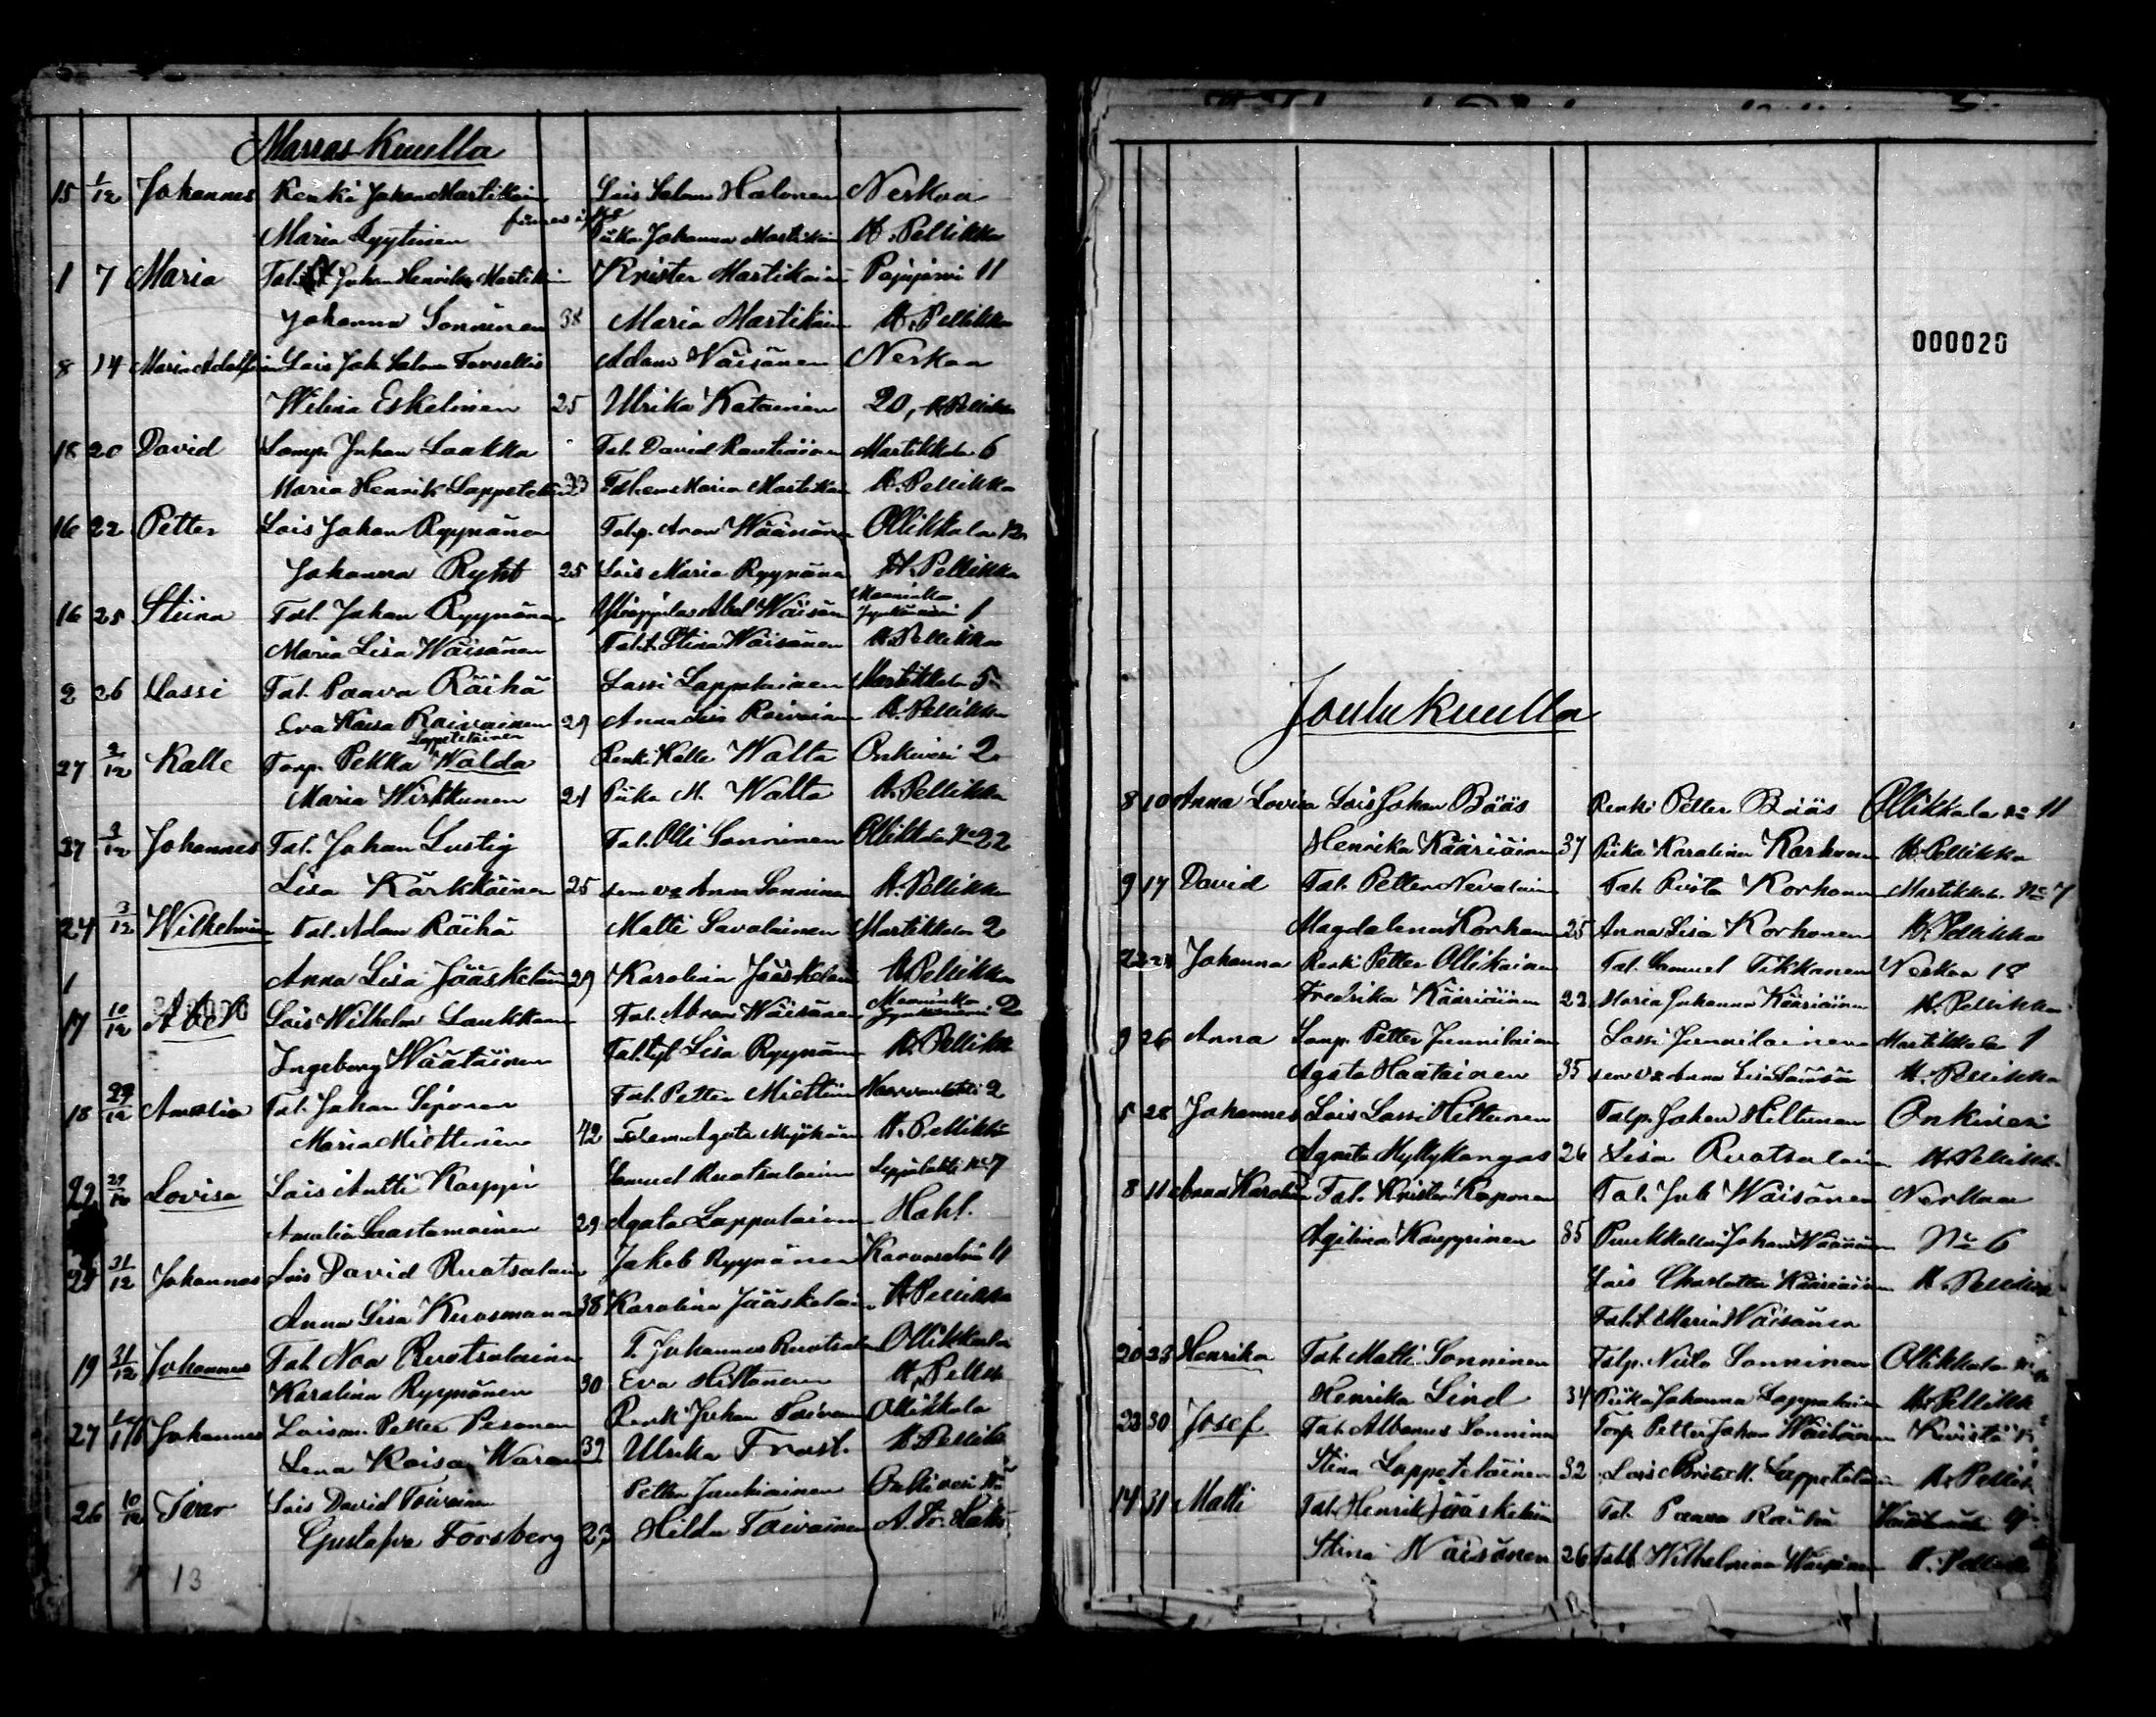 Marras Kuulla
15 1/12 Johannes Renki Johan Martikain Lois Salom Halonen Nerkoo
Maria Lyytinen Piika Johanna Martikain A. Pellikka
1 7 Maria Tal. Johan Henrik Martikain Krister Martikain Pajujärvi 11
Johanna Sonninen 38 Maria Martikain A. Pellikka
8 14 Maria Adolfiina Lois Joh. Salom Forsellis Adam Wäisänen Nerkoo
Wilina Eskelinen 25 Ulrika Katainen 20, A. Pellikka
18 20 David Lamp. Juhan Laakka Tal. David Rautiainen Martikkala 6
Maria Henrik Lappetelä 23 Tal. em Maria Martikain A. Pellikka
16 22 Petter Lois Johan Ryynänen Talp. Aron Wäänänen Ollikkala 12
Johanna Ryht 25 Lois Maria Ryynäne A. Pellikka
16 25 Stiina Tal. Johan Ryynänen Abel Wäisän Maaninka 1
Maria Lisa Wäisänen Tal. t. Stina Wäisänen A. Pellikka
2 26 Lassi Tal. Paava Räihä Lassi Lappalainen Martikkala 5
Eva Kaisa Roivainen 29 Anna Lisa Roivainen A. Pellikka
Lappeteläinen
27 2/12 Kalle Torp. Pekka Walda Renki Kalle Walta Onkivesi 2
Maria Wirkkunen 24 Piika M. Walta A. Pellikka
27 3/12 Johannes Tal. Johan Lustig Tal. Olli Sonninen Ollikkala No 22
Lisa Kärkkäinen 25 sen va Anna Sonninen A. Pellikka
24 3/12 Wilhelmiina Tal. Adam Räihä Matti Savolainen Martikkala 2
1 Anna Lisa Jääskeläin 29 Karolina Jääskeläin A. Pellikka
17 10/12 Abel Lois Wilhelm Laukkanen Tal. Abram Wäisänen Maaninka 2
Ingeborg Wäätäinen Tal. tyt Lisa Ryynäne A. Pellikka
18 29/12 Amalia Tal. Johan Siponen Tal. Petter Miettin 2
Maria Miettinen 42 Tal. em Agata A. Pellikka
22 29/10 Lovisa Lois Antti Karppi Samuel Ruotsalainen Leppälahti No 7
Amalia Saastamoinen 29 Agata Lappalainen Hahl.
31/12 Johannes Lois David Ruotsalain Jakob Ryynänen 11
Anna Lisa Kuosmanen 38 Karolina Jääskeläin A. Pellikka
19 31/12 Johannes Tal. Noa Ruotsalainen T. Johannes Ruotsal Ollikkala
Karolina Ryynänen 30 Eva Hiltonen A. Pellik
27 Johannes Loism. Petter Pesonen Renk Juhan Toivan Ollikkala
Lena Kaisa Waran 39 Ulrika Frost. A. Pellik
26 10/12 Ivar Lois David Toivain Petter Jauhiainen Onkivesi No
Gustafva Forsberg 23 Hilda Toivainen
13
000020
Joulukuulla
8 10 Anna Lovisa Lois Johan Bääs Renki Petter Bääs Ollikkala No 11
Henrika Kääriäinen 37 Piika Karolina Korhonen A. Pellikka
9 17 David Tal. Petter Nevalain Tal. Risto Korhonen Martikkala No 7
Magdalena Korhonen 25 Anna Lisa Korhonen A. Pellikka
22 24 Johanna Renki Petter Ollikainen Tal. Samuel Tikkanen Nerkoo 18
Fredrika Kääriäinen 23 Maria Johanna Kääriäinen A. Pellikka
9 26 Anna Lamp. Petter Junnilainen Lassi Junnilainen Martikkala 1
Agata Haatainen 35 sen va Anna Lisa A. Pellikka
5 28 Johannes Lois Lassi Hiltunen Talp. Johan Hiltunen Onkivesi
Agata Myllykangas 26 Lisa Ruotsalain A. Pellikka
8 11 Anna Karolin Tal. Krister Kaponen Tal. Joh. Wäisänen Nerkoo
Agilina Kauppinen 35 Johan Wäänänen No 6
Lois Charlotta Kääriäinen A. Pellikka
Tal. t. Maria Wäisänen
20 23 Henrika Tal. Matti Sonninen Talp. Niilo Sonninen Ollikkala No
Henrika Lind 34 Piika Johanna Lappalain A. Pellikk
23 30 Josef Tal. Albanus Sonninen Torp. Petter Johan Kivistö
Stina Lappeteläinen 32 Lois Brita M. Lappeteläin A. Pellik
14 31 Matti Tal. Henrik Jääskeläin Tal. Paava Räihä
Stina Wäisänen 26 Talt Wilhelmina Wäisänen A. Pellikk